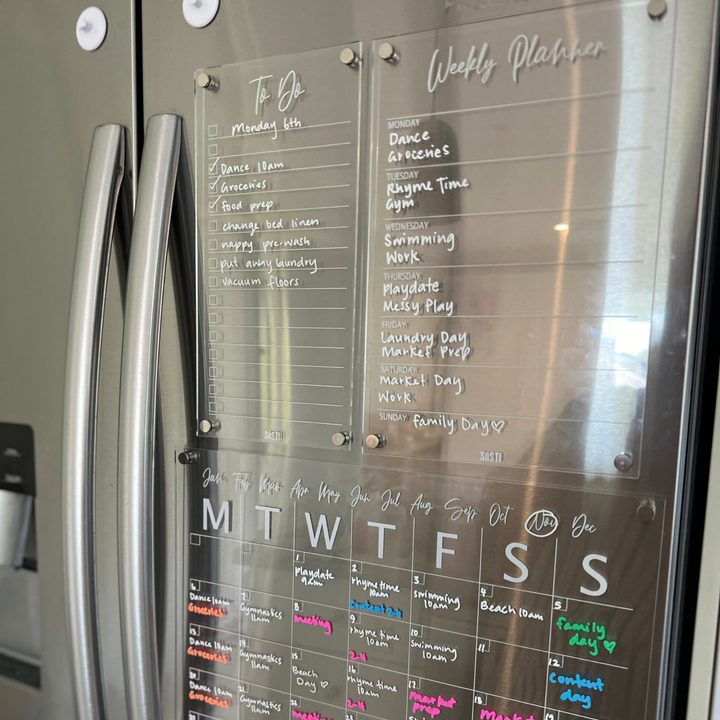 To Do
Monday 6th
Dance 10am
Groceries
food prep
change bed linen
nappy pre-wash
put away laundry
vacuum floors
SASTI
Weekly Planner
MONDAY
Dance
Groceries
TUESDAY
Rhyme Time
Gym
WEDNESDAY
Swimming
Work
THURSDAY
playdate
Messy Play
FRIDAY
Laundry Day
Market Prep
SATURDAY
Market Day
Work
SUNDAY family Day♡
SASTI
Jan Feb Mar Apr May Jun Jul Aug Sep Oct Nov Dec
M T W T F S S
1 2 3 4 5
playdate 9am
rhyme time 10am
content
swimming 10am
Beach 10am
family day ♡
6 7 8 9 10 11 12
Dance 10am
Groceries
Gymnastics 11am
meeting
rhyme time 10am
2-4
Swimming 10am
content day
13 14 15 16 17 18 19
Dance 10am
Groceries
Gymnastics 11am
Beach Day ♡
rhyme time 10am
2-4
market prep
20 21 22
Dance 10am
Groceries
Gymnastics 11am